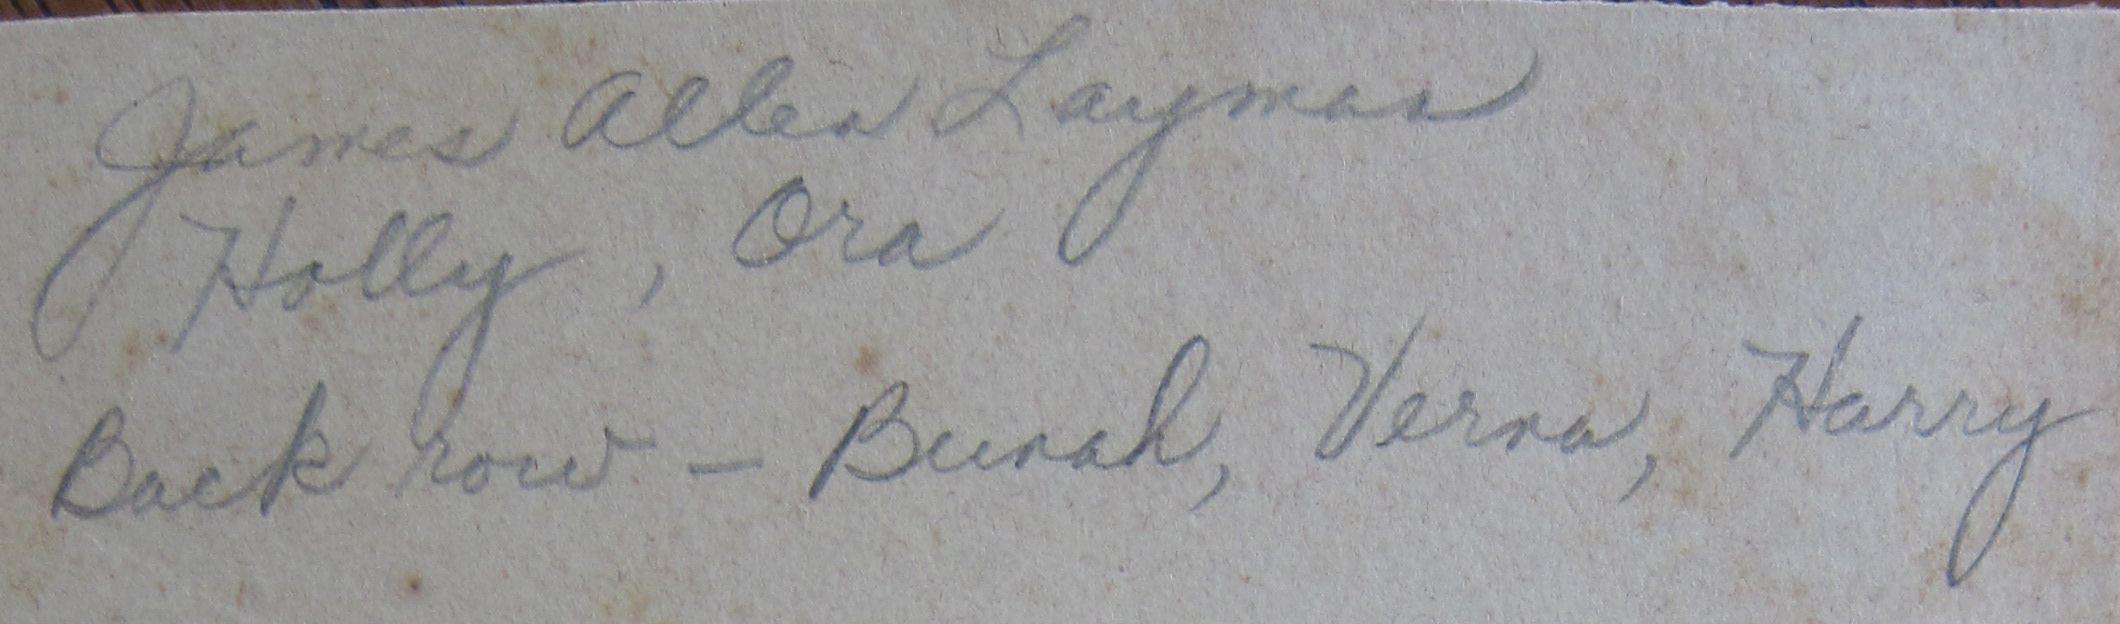 James Allen Layman
Holly, Ora
Back row - Bunah, Verna, Harry